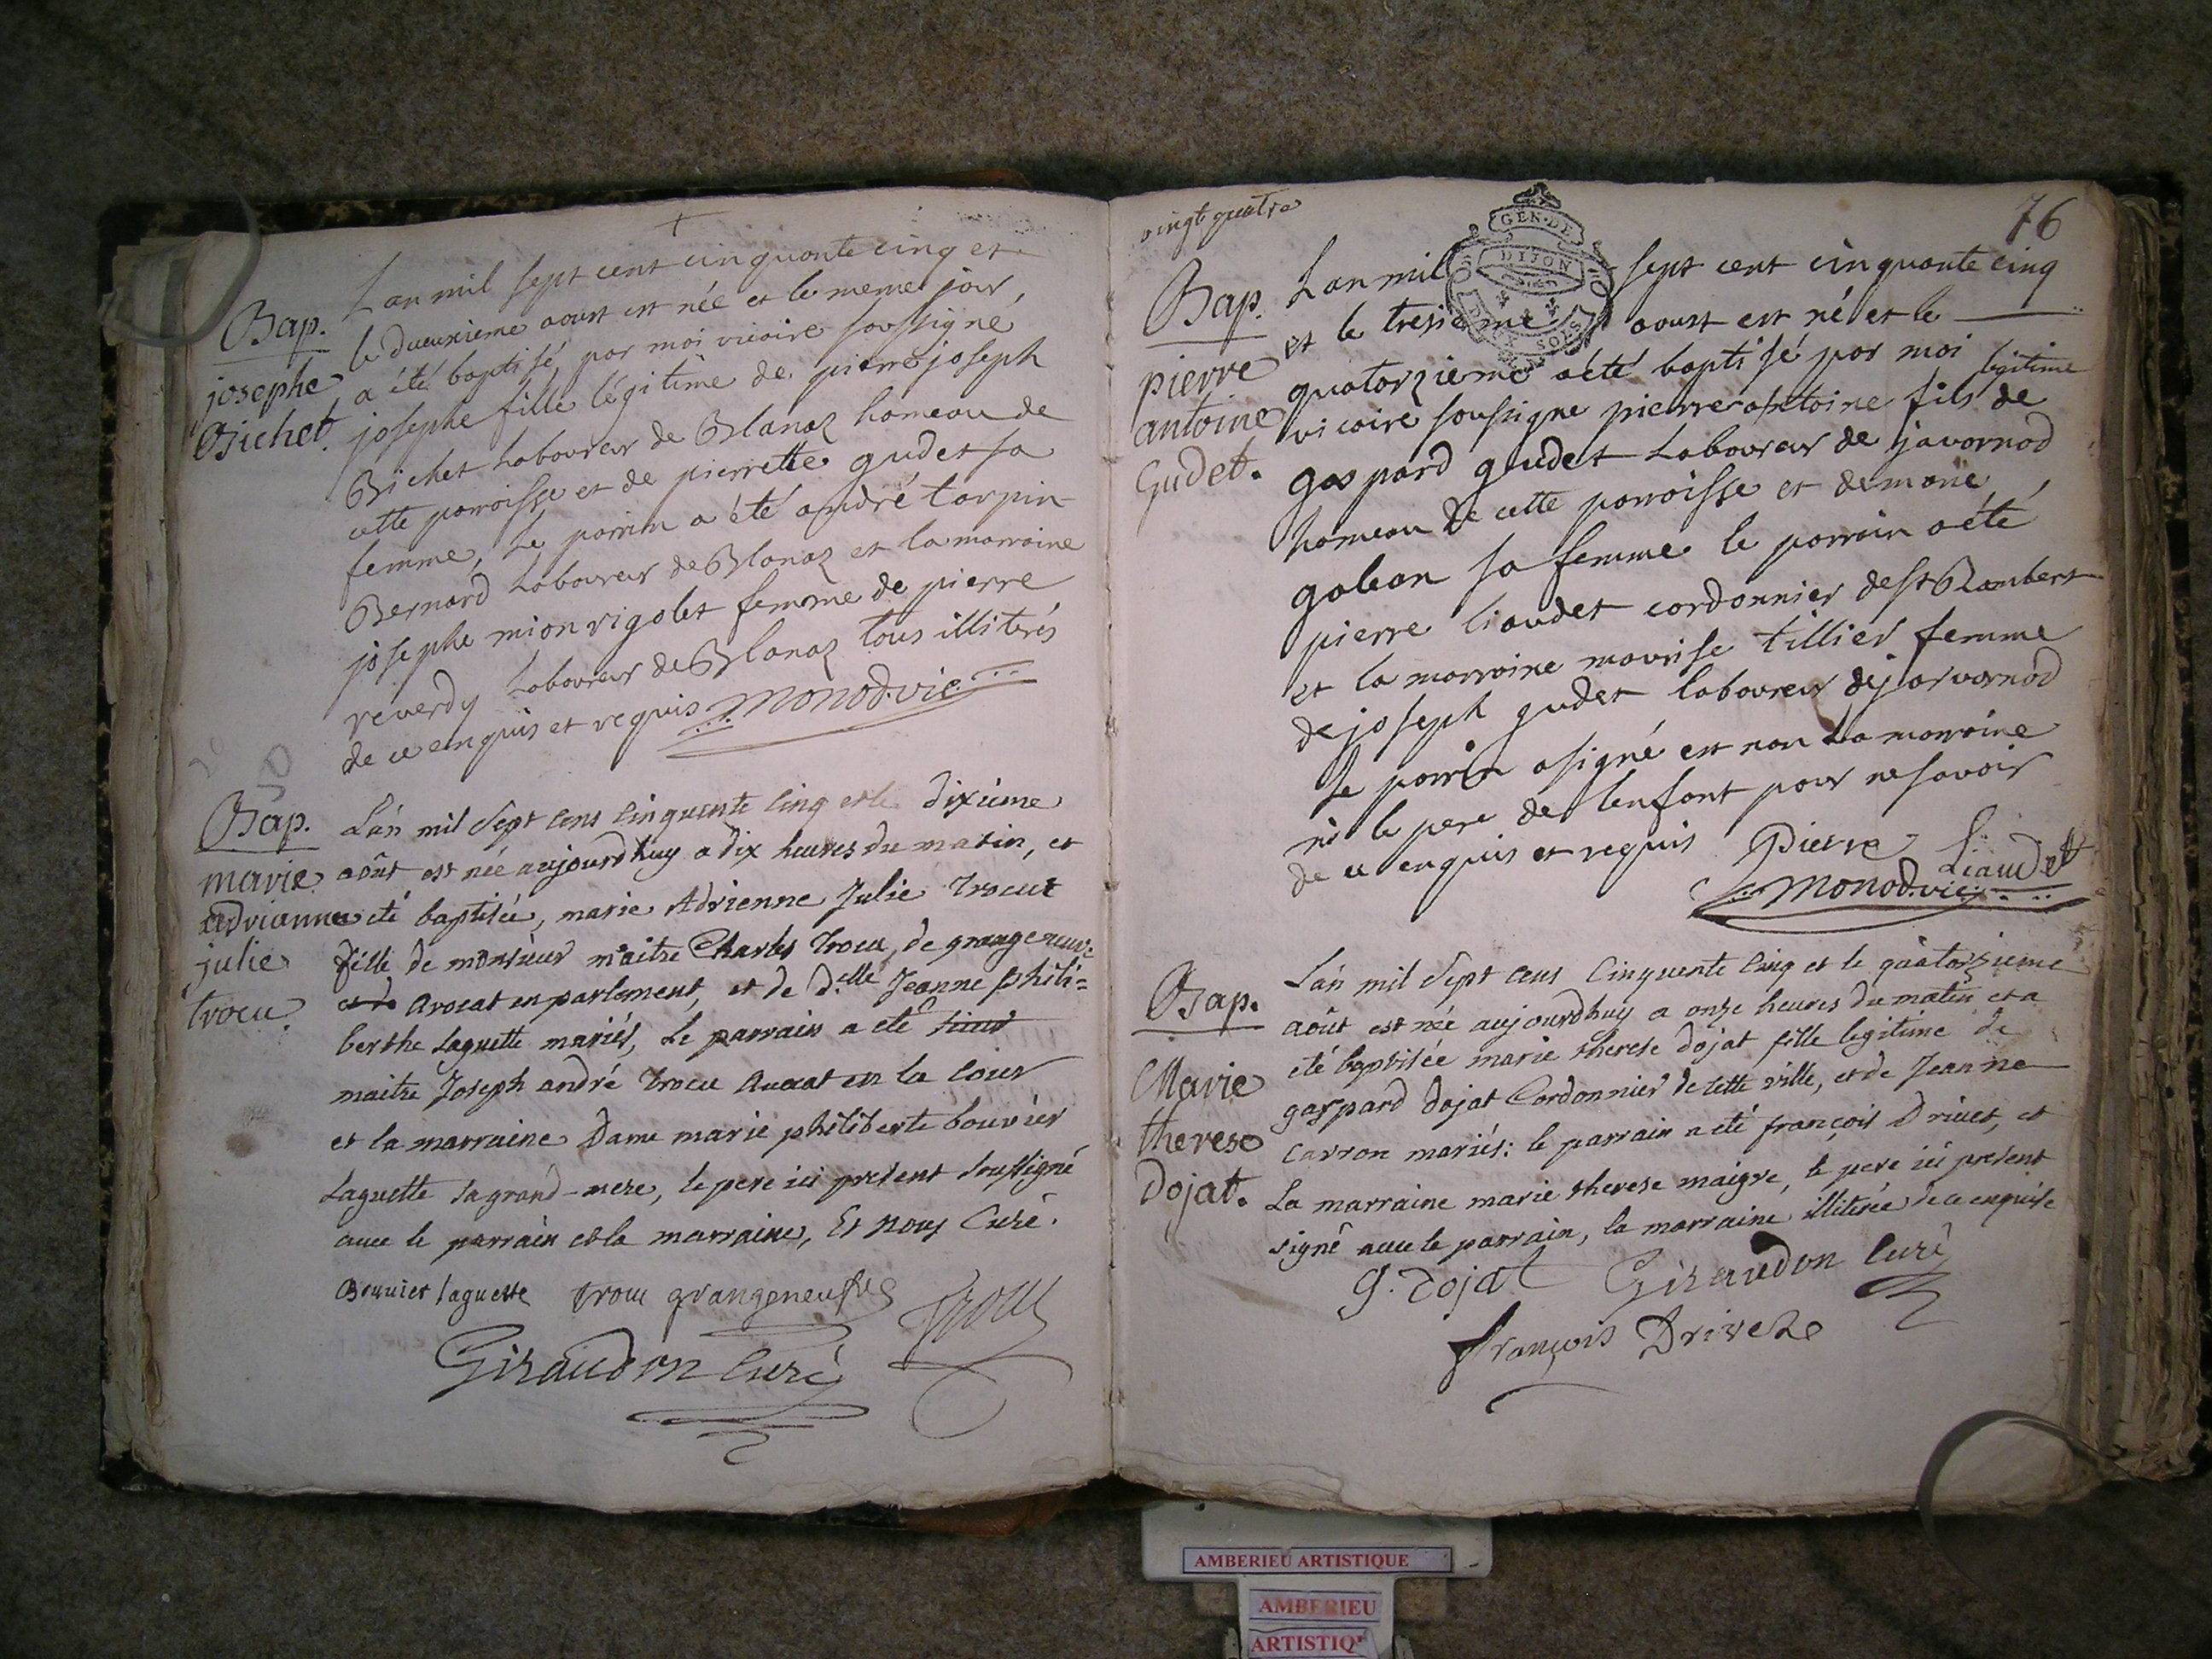 +
Bap.
josephe
Bichet.
Lan mil sept cent cinquante cinq et
le dueuxieme aoust est née et le meme jour,
a été baptisé, par moi vicaire soussigne
josephe fille légitime de pierre joseph
Bichet Laboureur de Blanaz hameau de
cette parroisse et de pierrette gudet sa
femme, Le parrin a été andré tarpin
Bernard Laboureur de Blanaz et la marraine
josephe mion rigolet femme de pierre
reverdy Laboureur de Blanaz tous illiterés
de ce enquis et requis Monod. vic.
Bap.
marie
adrianne
julie
trocu.
L'an mil Sept cens Cinquente Cinq et le dixieme
août est née aujourdhuy a dix heures du matin, et
a eté baptisée, marie Adrienne Julie Trocut
fille de monsieur maitre Charles Trocu, de grangeneuve
et de Avocat en parlement, et de d.elle Jeanne phili=
berthe Laguette mariés, Le parrain a eté
maitre Joseph andré Trocu Avocat en la Cour
et la marraine Dame marie philiberte bouvier
Laguette sa grand-mere, le pere ici present soussigné
avec le parrain et la marraine, Et nous Curé.
Bouvier laguette trocu grangeneufve Trocu
Giraudon Curé
vingt quatre
76
GEN. DE
DIJON
SOLS
Bap.
pierre
antoine
Gudet.
Lan mil sept cent cinquante cinq
et le tresieme aoust est né et le
quatorzieme a été baptisé par moi
vicaire soussigne pierre antoine fils légitime de
gaspard gudet Laboureur de javornod
hameau de cette parroisse et de marie
galean sa femme le parrain a été
pierre liaudet cordonnier de st Rambert
et la marraine maurise tillier femme
de joseph gudet laboureur de jarvornod
le parrin a signé et non La marraine
ni le pere de lenfant pour ne savoir
de ce enquis et requis Pierre Liaudet
Monod. vic.
Bap.
Marie
therese
Dojat.
L'an mil Sept cens Cinquente Cinq et le quatorzieme
août est née aujourdhuy a onze heures du matin et a
eté baptisée marie therese dojat fille legitime de
gaspard dojat Cordonnier de cette ville, et de Jeanne
Carron mariés: le parrain a eté françois Drivet, et
La marraine marie therese maigre, le pere ici present
signé avec le parrain, la marraine illiterée de ce enquise
G. Dojat Giraudon Curé
françois Drivet
AMBERIEU ARTISTIQUE
AMBERIEU
ARTISTIQ